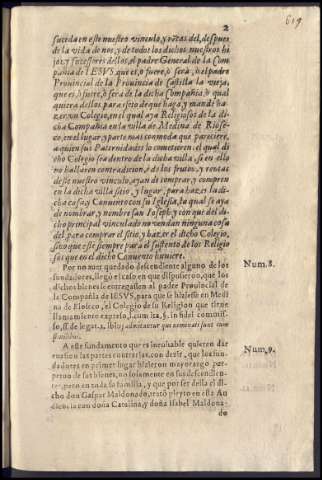 2
619
suceda en este nuestro vinculo, y rentas del, despues
de la vida de nos, y de todos los dichos nuestros hi
jos, y sucessores dellos, al padre General de la Com
pañia de IESVS que es, ò fuere, ò serà, ò al padre
Prouincial de la Prouincia de Castilla la vieja,
que es, ò fuere, ò serà de la dicha Compañia, ò qual
quiera dellos para efeto de que haga, y mande ha-
zer vn Colegio, en el qual aya Religiosos de la di
cha Compañia en la villa de Medina de Riose-
co, en el lugar, y parte mas comoda que pareciere,
a quien sus Paternidades lo cometieren: el qual di
cho Colegio sea dentro de la dicha villa, si en ella
no hallaren contradicion, è de los frutos, y rentas
deste nuestro vinculo, ayan de comprar, y compren
en la dicha villa sitio, y lugar, para hazer la di-
cha casa, y Conuento con su Iglesia, la qual se aya
de nombrar, y nombre san Ioseph: y con que del di-
cho principal vinculado no vendan ninguna cosa
del, para comprar el sitio, y hazer el dicho Colegio,
sino que este siempre para el sustento de los Religio
sos que en el dicho Conuento huuiere.
Por no auer quedado descendiente alguno de los
fundadores, llegò el caso en que dispusieron, que los
dichos bienes se entregassen al padre Prouincial de
la Compañia de IESVS, para que se hiziesse en Medi
na de Rioseco, el Colegio de su Religion que tiene
llamamiento expreso, l. cum ita, §. in fidei commis-
so, ff. de legat. 2. ibi:
Num. 8.
A este fundamento que es inuiolable quieren dar
euasion las partes contrarias, con dezir, que los fun-
dadores en primer lugar hizieron mayorazgo per-
petuo de sus bienes, no solamente en sus descendien-
tes, pero en toda su familia, y que por ser della el di-
cho don Gaspar Maldonado, tratò pleyto en esta Au
diencia con doña Catalina, y doña Isabel Maldona-
do
Num. 9.